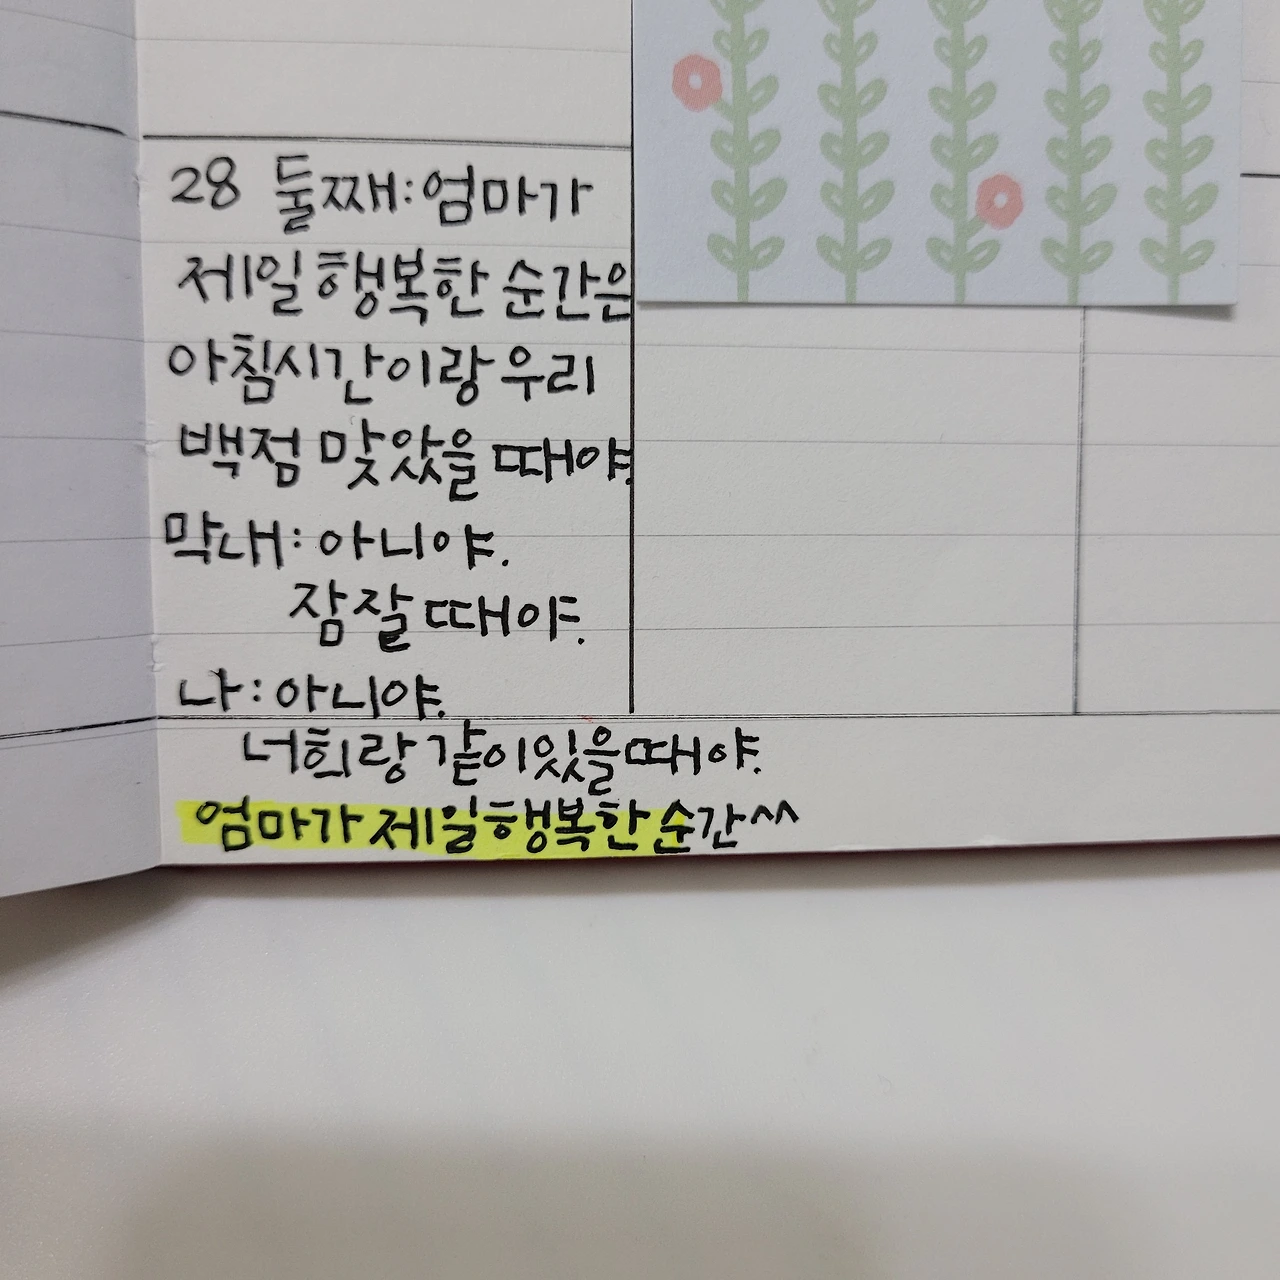 28 둘째:엄마가
제일 행복한 순간은
아침시간이랑 우리
백점 맞았을 때야.
막내: 아니야.
잠잘 때야.
나: 아니야.
너희랑 같이있을때야.
엄마가 제일 행복한 순간^^